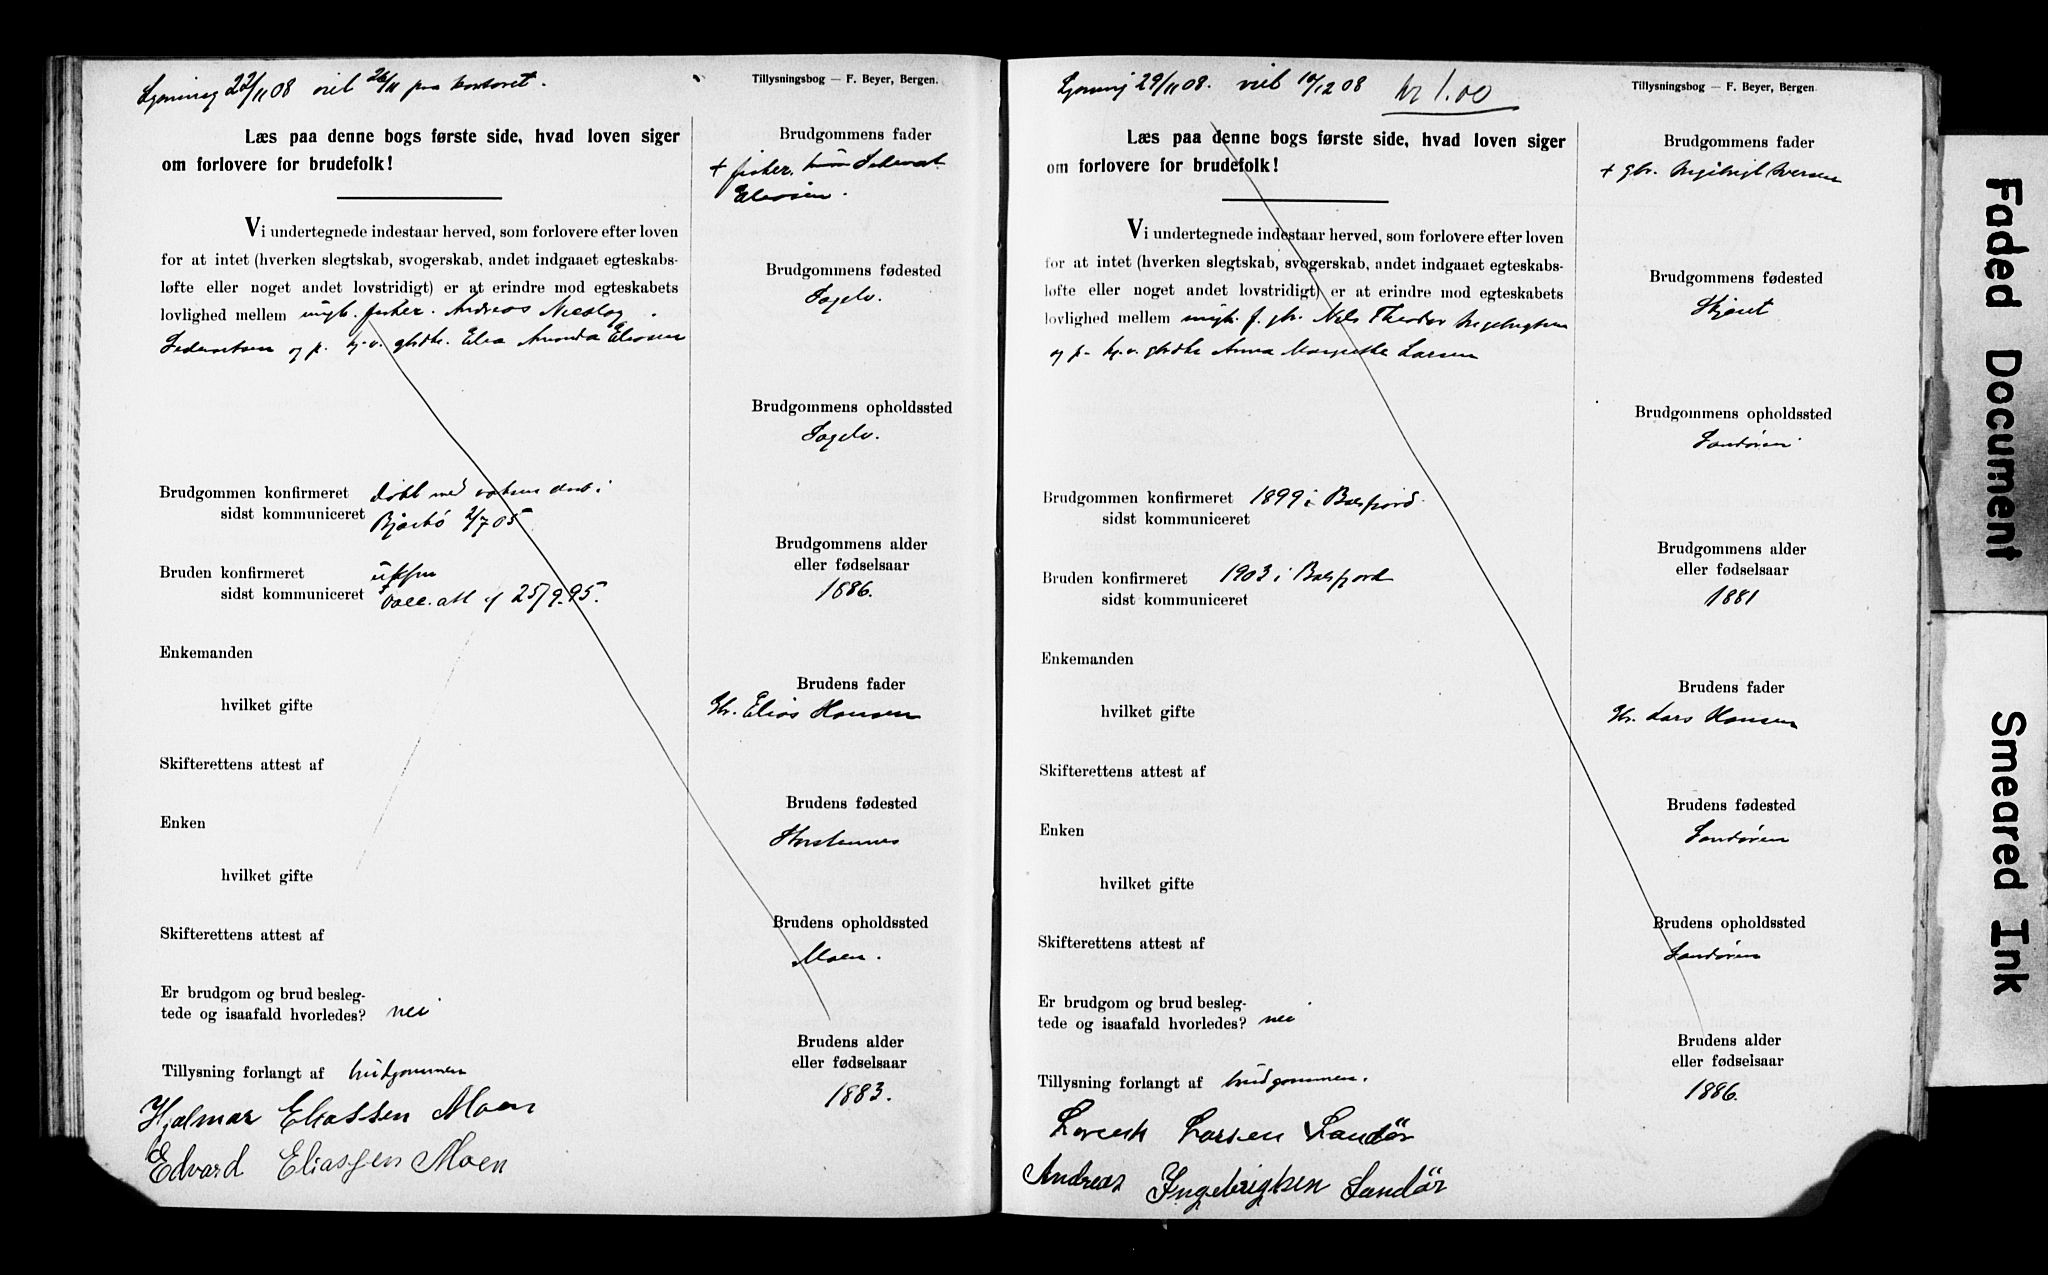 Lysning 22/11 08 viet 26/11 paa kontoret.
Tillysningsbog — F. Beyer, Bergen.
Læs paa denne bogs første side, hvad loven siger
om forlovere for brudefolk!
Vi undertegnede indestaar herved, som forlovere efter loven
for at intet (hverken slegtskab, svogerskab, andet indgaaet egteskabs-
løfte eller noget andet lovstridigt) er at erindre mod egteskabets
lovlighed mellem ungk. fisker. Andreas Nicolay
Sedevatsen og p. hj. v. gbdtr. Elea Amanda Eleosen
Brudgommen konfirmeret døbt med voksen daab i
sidst kommuniceret Bjarkö 2/7 05
Bruden konfirmeret ukfm
sidst kommuniceret Vacc. att af 25/9. 95.
Enkemanden
hvilket gifte
Skifterettens attest af
Enken
hvilket gifte
Skifterettens attest af
Er brudgom og brud besleg-
tede og isaafald hvorledes? nei
Tillysning forlangt af brudgommen
Hjalmar Eliassen Moen
Edvard Eliassen Moen
Brudgommens fader
+ fisker.
Eleosen.
Brudgommens fødested
Sagelv.
Brudgommens opholdssted
Sagelv.
Brudgommens alder
eller fødselsaar
1886.
Brudens fader
Gbr. Elias Hansen
Brudens fødested
Storstennes
Brudens opholdssted
Moen.
Brudens alder
eller fødselsaar
1883.
Lysning 29/11 08. viet 10/12 08 kr 1.00
Tillysningsbog — F. Beyer, Bergen.
Læs paa denne bogs første side, hvad loven siger
om forlovere for brudefolk!
Vi undertegnede indestaar herved, som forlovere efter loven
for at intet (hverken slegtskab, svogerskab, andet indgaaet egteskabs-
løfte eller noget andet lovstridigt) er at erindre mod egteskabets
lovlighed mellem ungk. f. gbr. Nils Theodor Ingebrigtsen
og p. hj. v. gbdtr Anna Margrethe Larsen
Brudgommen konfirmeret 1899 i Balsfjord.
sidst kommuniceret
Bruden konfirmeret 1903 i Balsfjord
sidst kommuniceret
Enkemanden
hvilket gifte
Skifterettens attest af
Enken
hvilket gifte
Skifterettens attest af
Er brudgom og brud besleg-
tede og isaafald hvorledes? nei
Tillysning forlangt af brudgommen.
Lorents Larsen Sandør
Andreas Ingebrigtsen Sandør
Brudgommens fader
+ gbr. Ingebrigt Iversen
Brudgommens fødested
Skjaret
Brudgommens opholdssted
Sandøren
Brudgommens alder
eller fødselsaar
1881
Brudens fader
Gbr. Lars Hansen
Brudens fødested
Sandøren
Brudens opholdssted
Sandøren
Brudens alder
eller fødselsaar
1886.
Faded Document
Smeared Ink